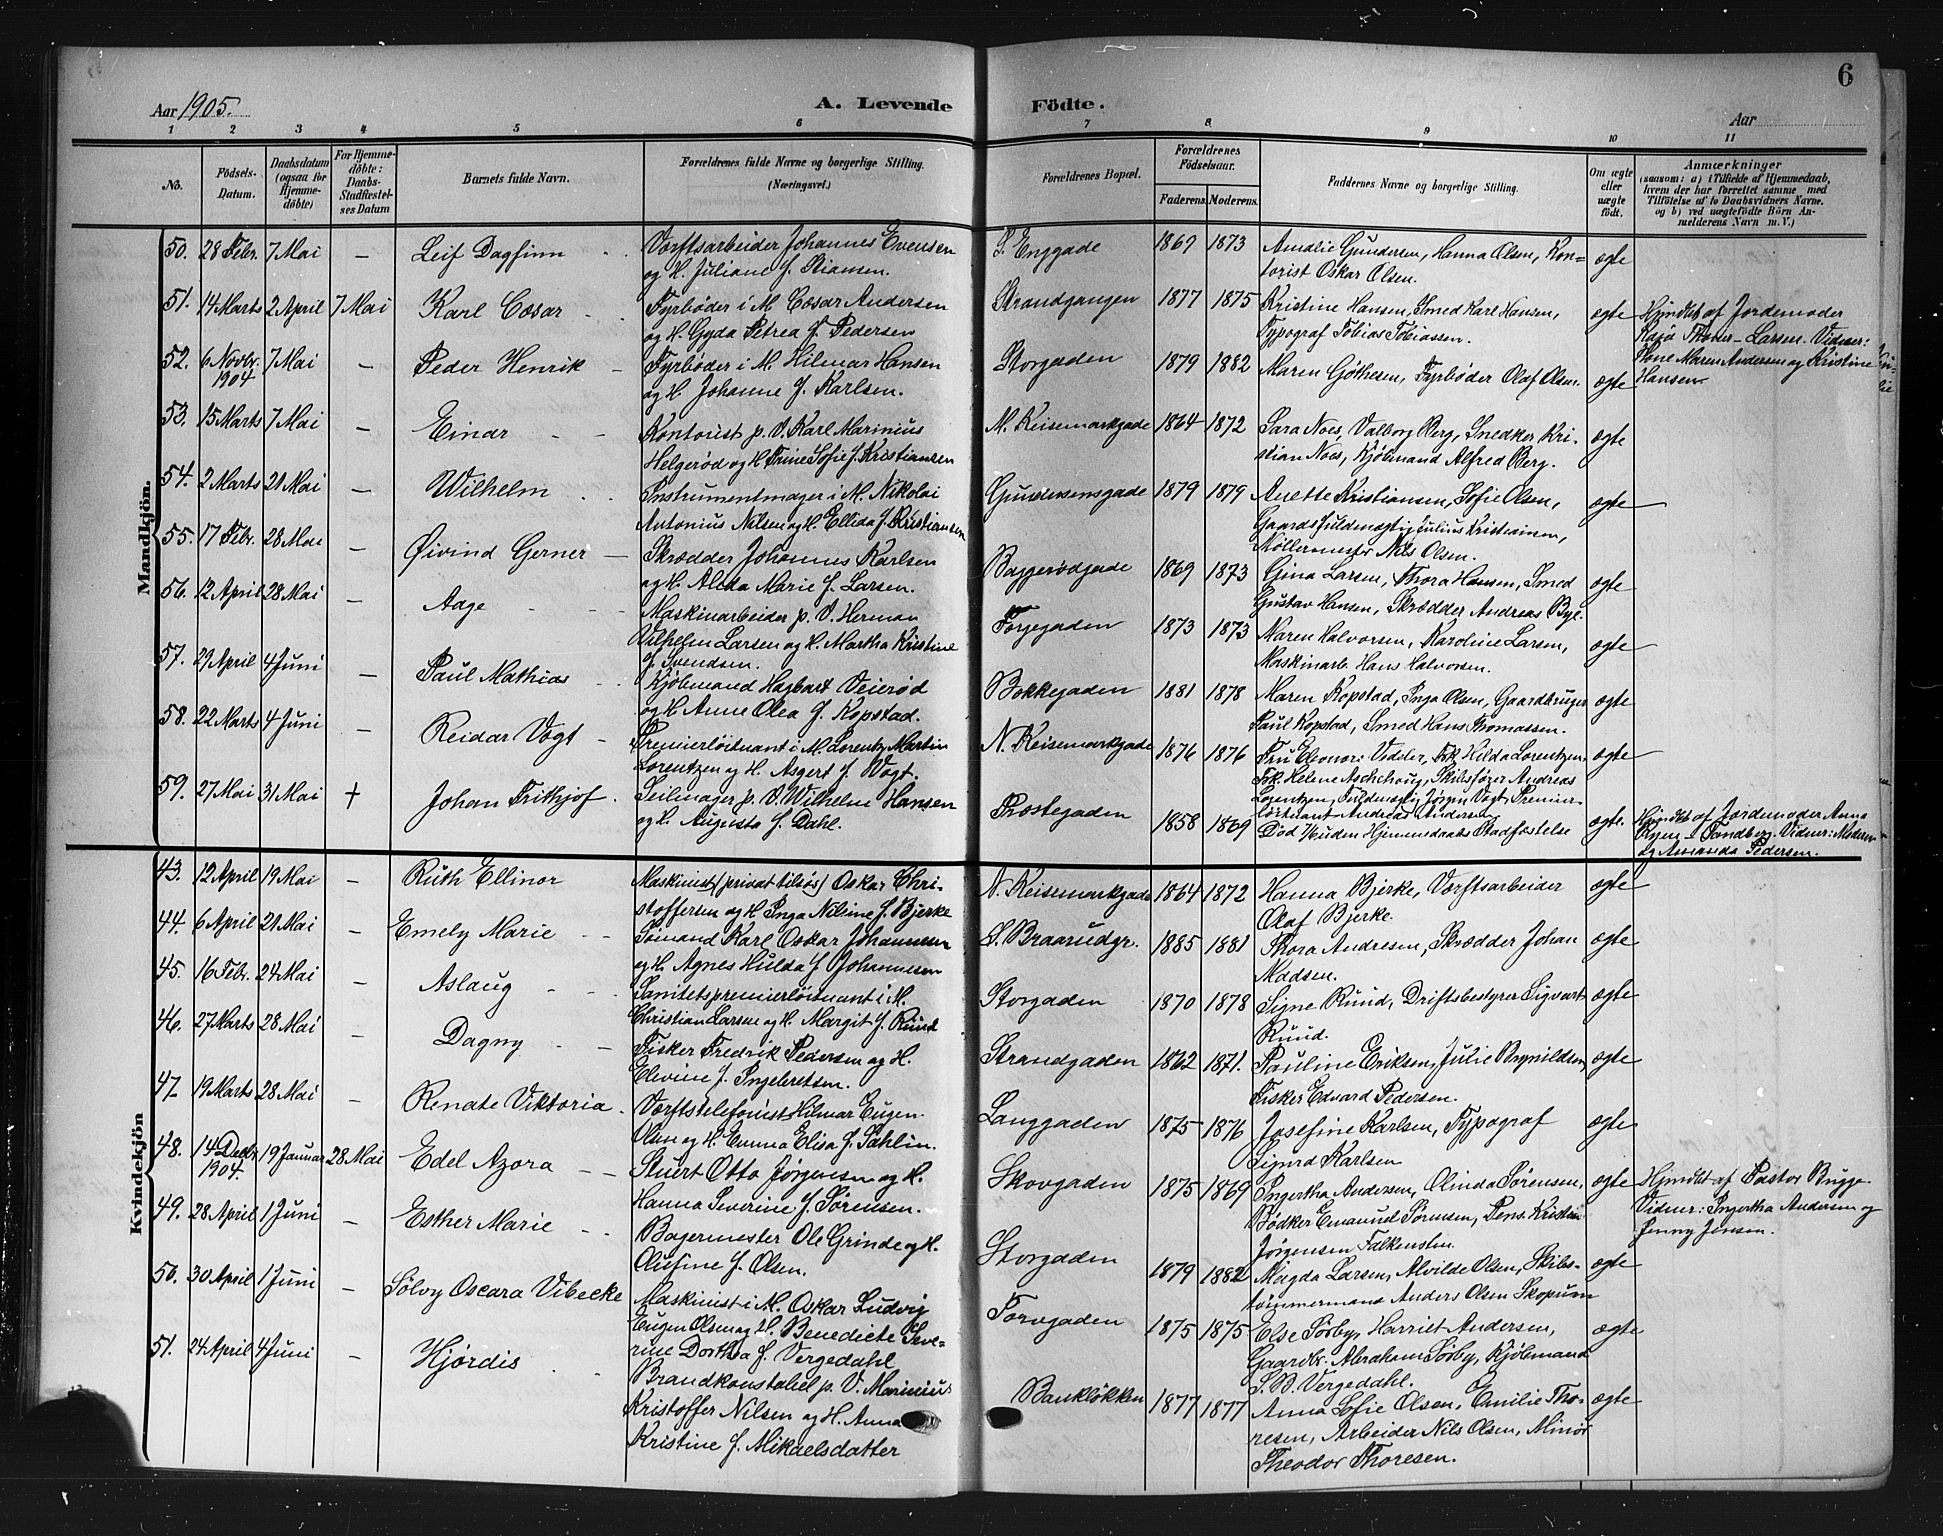 6
Aar 1905.
A. Levende Födte.
Aar
1 2 3 4 5 6 7 8 9 10 11
No.
Födsels-Datum.
Daabsdatum (ogsaa for Hjemme-döbte)
For Hjemme-döbte: Daabs-Stadfæstel-ses Datum
Barnets fulde Navn.
Forældrenes fulde Navne og borgerlige Stilling. (Næringsvei.)
Forældrenes Bopæl.
Forældrenes Födselsaar.
Faderens. Moderens.
Faddernes Navne og borgerlige Stilling.
Om ægte eller uægte födt.
Anmærkninger
(saasom: a) i Tilfælde af Hjemmedaab,
hvem der har forrettet samme med
Tilföielse af to Daabsvidners Navne.
og b) ved uægtefödte Börn An-
melderens Navn m. V.)
Mandkjön.
50. 28 Febr. 7 Mai – Leif Dagfinn Værftsarbeider Johannes Evensen
og H. Juliane f. Riansen.
S. Enggade 1869 1873 Amalie Gundersen, Hanna Olsen, Kon-
torist Oskar Olsen. ægte
51. 14 Marts 2 April 7 Mai Karl Cæsar Fyrbøder i M. Cæsar Andersen
og H. Gyda Petrea f. Pedersen
Strandgangen 1877 1875 Kristine Hansen, Smed Karl Hansen,
Typograf Tobias Tobiassen. ægte
Hjmdbt af Jordemoder
Thoner-Larsen. Vidner:
Maren Andersen og Kristine
Hansen.
52. 6 Novbr. 1904 7 Mai – Peder Henrik Fyrbøder i M. Hilmar Hansen
og H. Johanne f. Karlsen.
Storgaden 1879 1882 Maren Gøthesen, Fyrbøder Olaf Olsen. ægte
53. 15 Marts 7 Mai – Einar Kontorist p. V. Karl Marinius
Helgerød og H. Trine Sofie f. Kristiansen
N. Keisemarkgade 1864 1872 Sara Noes, Valborg Berg, Snedker Kri-
stian Noes, Kjøbmand Alfred Berg. ægte
54. 2 Marts 21 Mai – Wilhelm Instrumentmager i M. Nikolai
Antonius Nilsen og H. Ellida f. Kristiansen
Gundersensgade 1879 1879 Anette Kristiansen, Sofie Olsen,
Gaardsfuldmægtig Julius Kristiansen,
Møllermester Nils Olsen. ægte
55. 17 Febr. 28 Mai – Øivind Gerner Skrædder Johannes Karlsen
og H. Alida Marie f. Larsen.
Baggerødgade 1869 1873 Gina Larsen, Thora Hansen, Smed
Gustav Hansen, Skrædder Andreas Bye. ægte
56. 12 April 28 Mai – Aage Maskinarbeider p. V. Herman
Vilhelm Larsen og H. Martha Kristine
f. Svendsen.
Torgegaden 1873 1873 Maren Halvorsen, Karoline Larsen,
Maskinarb. Hans Halvorsen. ægte
57. 29 April 4 Juni – Paul Mathias Kjøbmand Hagbart Veierød
og H. Anne Olea f. Kopstad.
Bokkegaden 1881 1878 Maren Kopstad, Inga Olsen, Gaardbruger
Paul Kopstad, Smed Hans Thomassen. ægte
58. 22 Marts 4 Juni – Reidar Vogt Premierløitnant i M. Lorentz Martin
Lorentzen og H. Asgert f. Vogt.
N. Keisemarkgade 1876 1876 Fru Eleonore Vidder, Frk. Hilda Lorentzen,
Frk. Helene Aschehoug, Skibsfører Andreas
Lorentzen, Fuldmægtig Jørgen Vogt, Premier-
løitnant Andreas Andersen. ægte
59. 27 Mai 31 Mai + Johan Frithjof Seilmager p. V. Wilhelm Hansen
og H. Augusta f. Dahl.
Prostegaden 1858 1869 Død uden Hjemmedaabs Stadfæstelse ægte.
Hjmdbt af Jordemoder Anna
Sandberg. Vidner: Moderen
og Amanda Pedersen.
Kvindekjön
43. 12 April 19 Mai – Ruth Ellinor Maskinist (privat tilsøs) Oskar Chri-
stoffersen og H. Inga Nilsine f. Bjerke
N. Keisemarkgade 1864 1872 Hanna Bjerke, Værftsarbeider
Olaf Bjerke. ægte
44. 6 April 21 Mai – Emely Marie Sømand Karl Oskar Johannesen
og H. Agnes Hulda f. Johannesen
S. Braarudgt. 1885 1881 Thora Andresen, Skrædder Johan
Madsen. ægte
45. 16 Febr. 24 Mai – Aslaug Sanitetspremierløitnant i M.
Christian Larsen og H. Margit f. Ruud
Storgaden 1870 1878 Signe Ruud, Driftsbestyrer Sigvart
Ruud. ægte
46. 27 Marts 28 Mai – Dagny Fisker Fredrik Pedersen og H.
Elevine f. Ingebretsen.
Strandgaden 1862 1871. Pauline Eriksen, Julie Brynildsen,
Fisker Edvard Pedersen. ægte
47. 19 Marts 28 Mai – Renate Viktoria Værftstelefonist Hilmar Eugen
Olsen og H. Emma Elisa f. Sahlin.
Langgaden 1875 1876 Josefine Karlsen, Typograf
Sigurd Karlsen ægte
48. 14 Decbr 1904. 19 Januar 28 Mai Edel Azora Stuert Otto Jørgensen og H.
Hanna Severine f. Sørensen.
Skovgaden 1875 1869 Ingertha Andersen, Olinda Sørensen,
Bødker Emanuel Sørensen, Pens. Kristian
Jørgensen Falkensten. ægte
Hjmdbt af Pastor Bugge
Vidner: Ingertha Andersen og
Jenny Jensen.
49. 28 April 1 Juni – Esther Marie Bagermester Ole Grinde og H.
Olufine f. Olsen.
Storgaden 1879 1882 Magda Larsen, Alvilde Olsen, Skibs-
tømmermand Anders Olsen Skopum ægte
50. 30 April 1 Juni – Sølvy Oscara Vibecke Maskinist i M. Oskar Ludvig
Eugen Olsen og H. Benedicte Seve-
rine Dorthea f. Vergedahl
Torvgaden 1875 1875 Else Sørby, Harriet Andersen,
Gaardbr. Abraham Sørby, Kjøbmand
S. B. Vergedahl. ægte
51. 24 April 4 Juni – Hjørdis Brandkonstabel p. V. Marinius
Kristoffer Nilsen og H. Anna
Kristine f. Mikaelsdatter
Bankløkken 1877 1877 Anna Sofie Olsen, Emilie Tho-
resen, Arbeider Nils Olsen, Minør
Theodor Thoresen. ægte